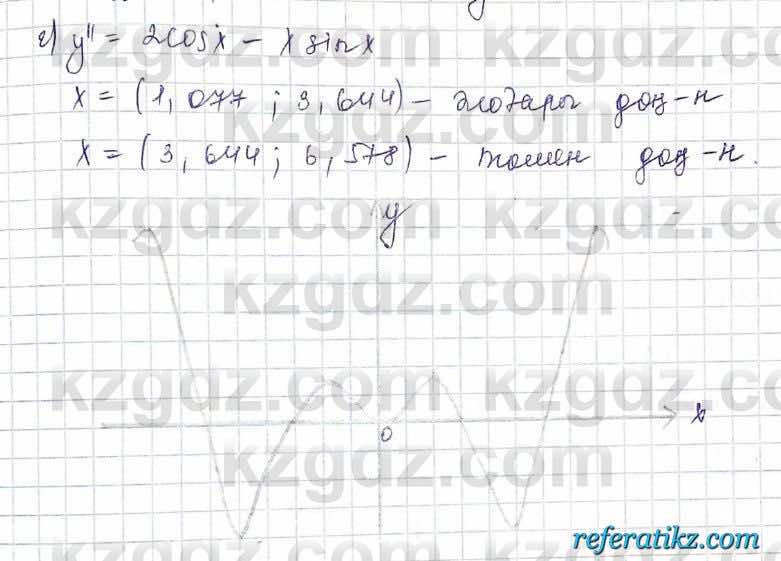 г) y'' = 2cosx - x sinx
x = (1,077 ; 3,644) - жоғары доң-н
x = (3,644 ; 6,578) - төмен доң-н.
kzgdz.com kzgdz.com
y
kzgdz.com
kzgdz.com kzgdz.com
x
0
kzgdz.com
referatikz.com